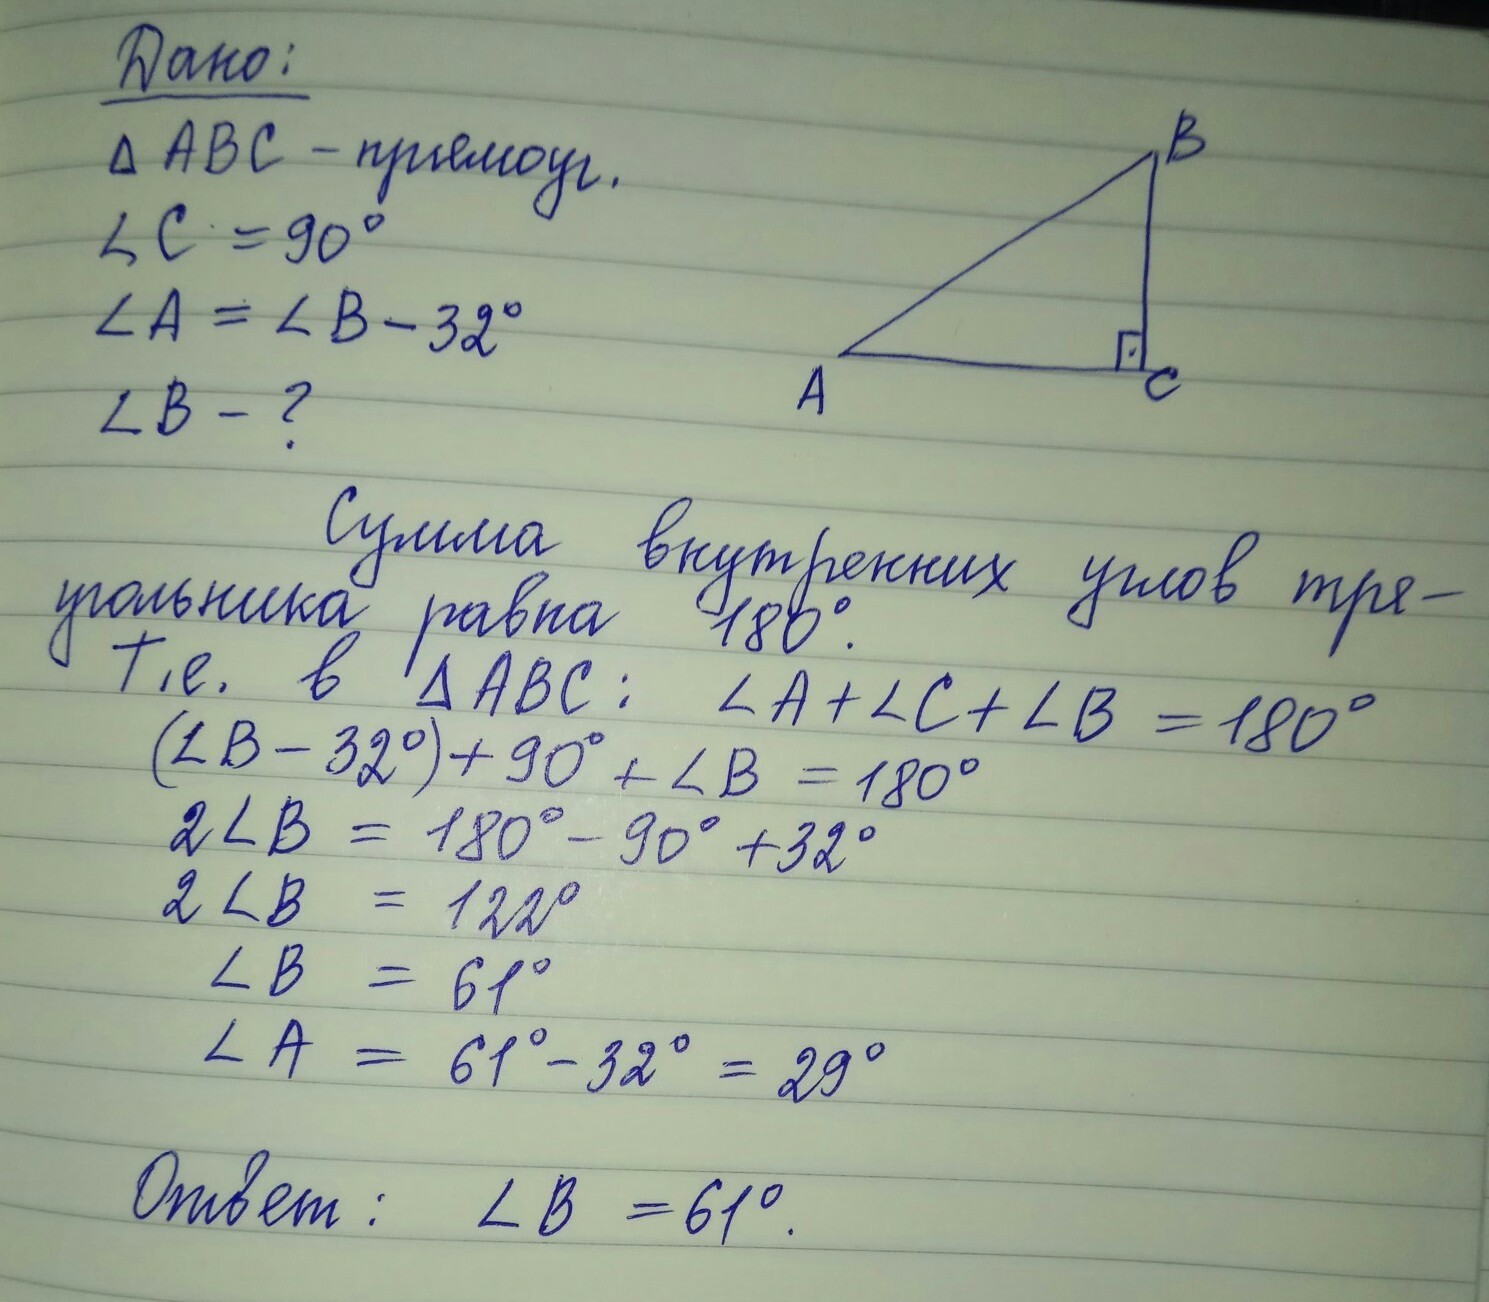 Дано:
Δ ABC – прямоуг.
∠C = 90°
∠A = ∠B – 32°
∠B – ?
B
A
C
Сумма внутренних углов тре-
угольника равна 180°.
Т.е. в ΔABC: ∠A+∠C+∠B = 180°
(∠B – 32°) + 90° + ∠B = 180°
2∠B = 180° – 90° + 32°
2∠B = 122°
∠B = 61°
∠A = 61° – 32° = 29°
Ответ: ∠B = 61°.